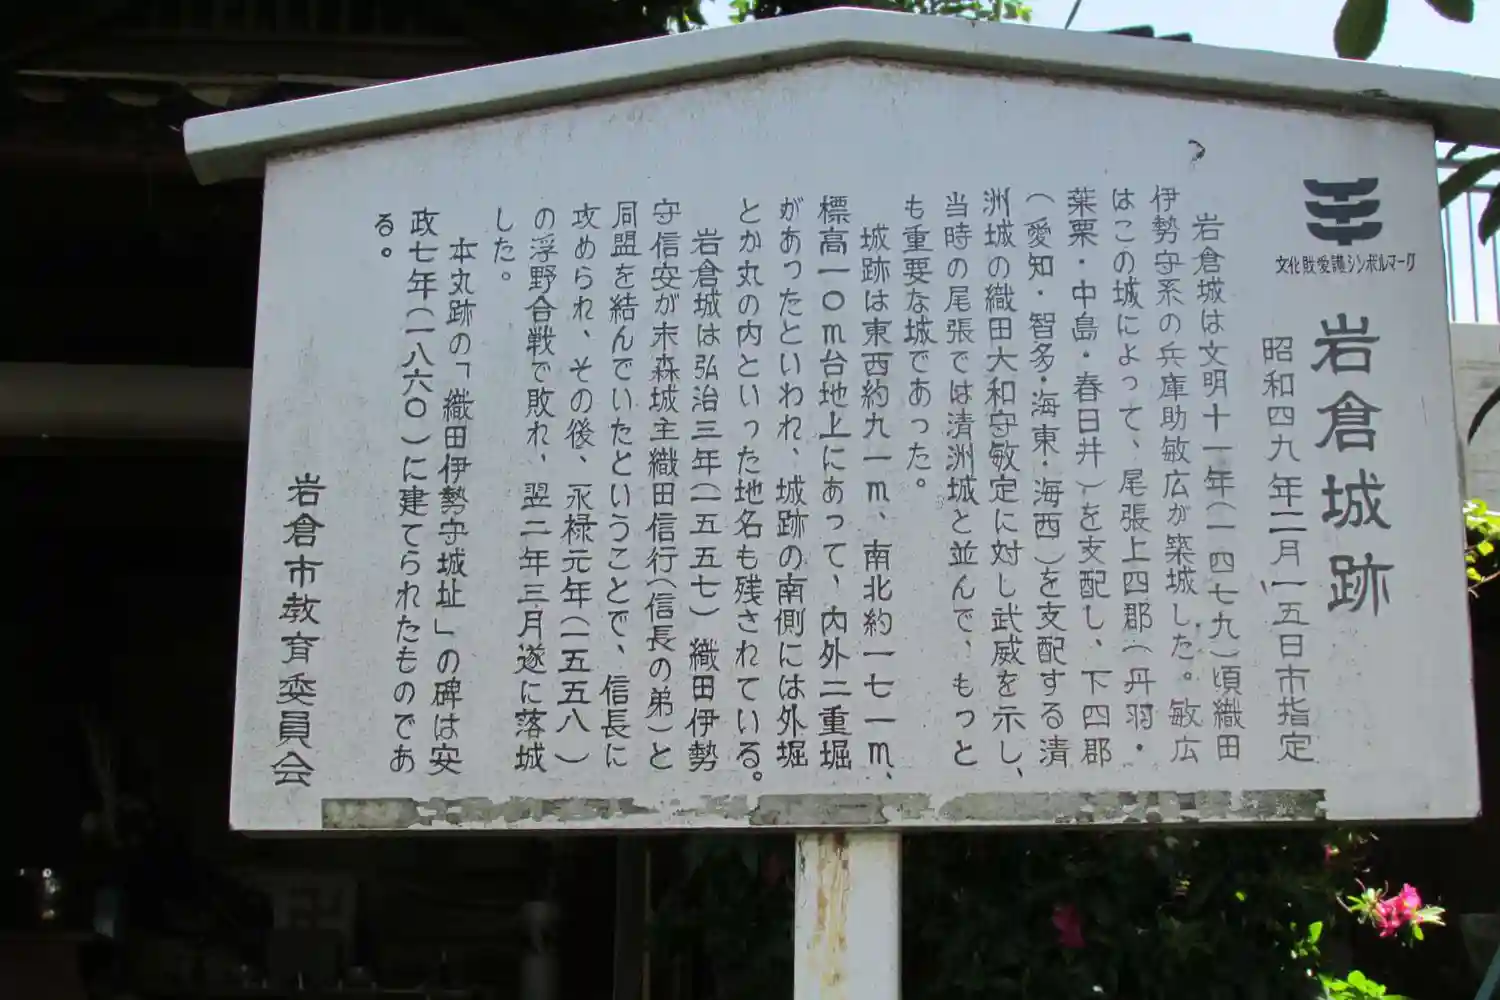 文化財愛護シンボルマーク
岩倉城跡
昭和四九年二月一五日市指定
岩倉城は文明十一年(一四七九)頃織田
伊勢守系の兵庫助敏広が築城した。敏広
はこの城によって、尾張上四郡(丹羽・
葉栗・中島・春日井)を支配し、下四郡
(愛知・智多・海東・海西)を支配する清
洲城の織田大和守敏定に対し武威を示し、
当時の尾張では清洲城と並んで、もっと
も重要な城であった。
城跡は東西約九一m、南北約一七一m、
標高一〇m台地上にあって、内外二重堀
があったといわれ、城跡の南側には外堀
とか丸の内といった地名も残されている。
岩倉城は弘治三年(一五五七)織田伊勢
守信安が末森城主織田信行(信長の弟)と
同盟を結んでいたということで、信長に
攻められ、その後、永禄元年(一五五八)
の浮野合戦で敗れ、翌二年三月遂に落城
した。
本丸跡の「織田伊勢守城址」の碑は安
政七年(一八六〇)に建てられたものであ
る。
岩倉市教育委員会